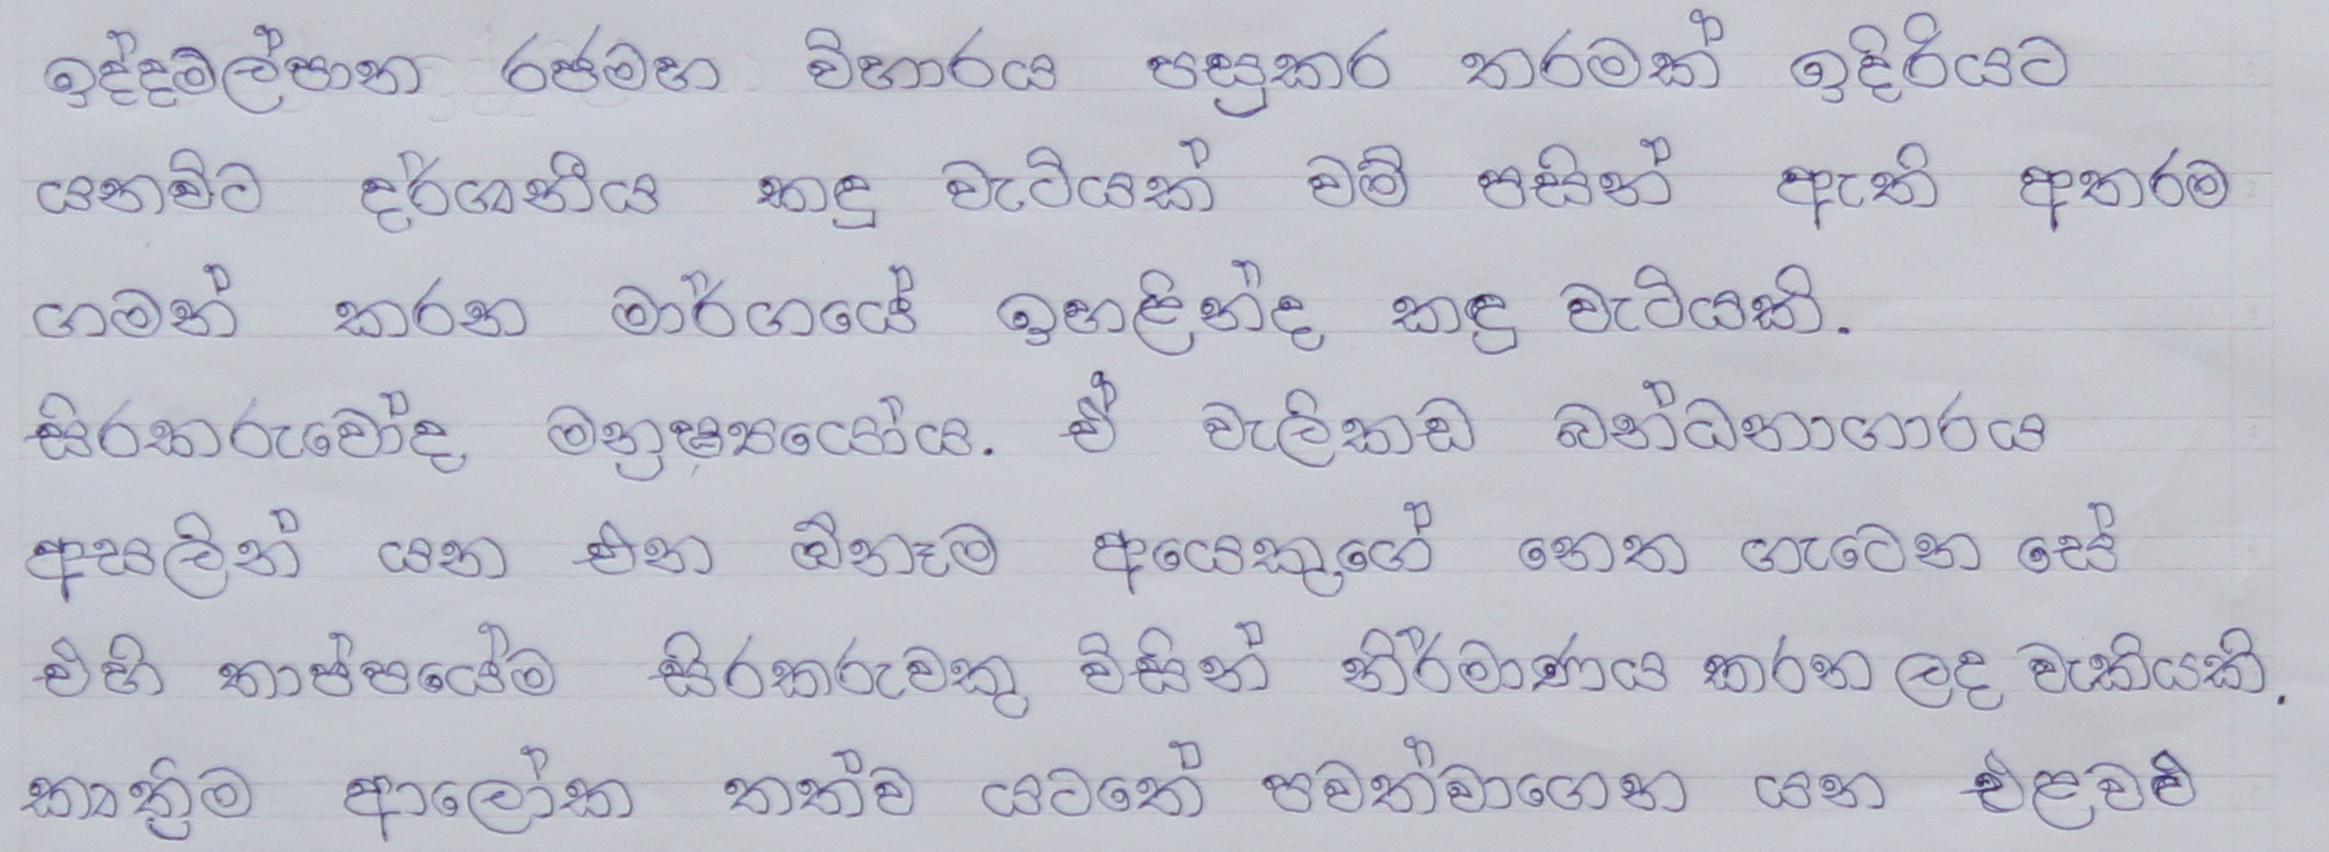 ඉද්දමල්පාන රජමහ විහාරය පසුකර තරමක් ඉදිරියට
යනවිට දර්ශනීය කඳු වැටියක් වම් පසින් ඇති අතරම
ගමන් කරන මාර්ගයේ ඉහළින්ද කඳු වැටියකි.
සිරකරුවෝද මනුෂ්‍යයෝය. ඒ වැලිකඩ බන්ධනාගාරය
අසලින් යන එන ඕනෑම අයෙකුගේ නෙත ගැටෙන සේ
එහි තාප්පයේම සිරකරුවකු විසින් නිර්මාණය කරන ලද වැකියකි.
කෘත්‍රිම ආලෝක තත්ව යටතේ පවත්වාගෙන යන එළවළු